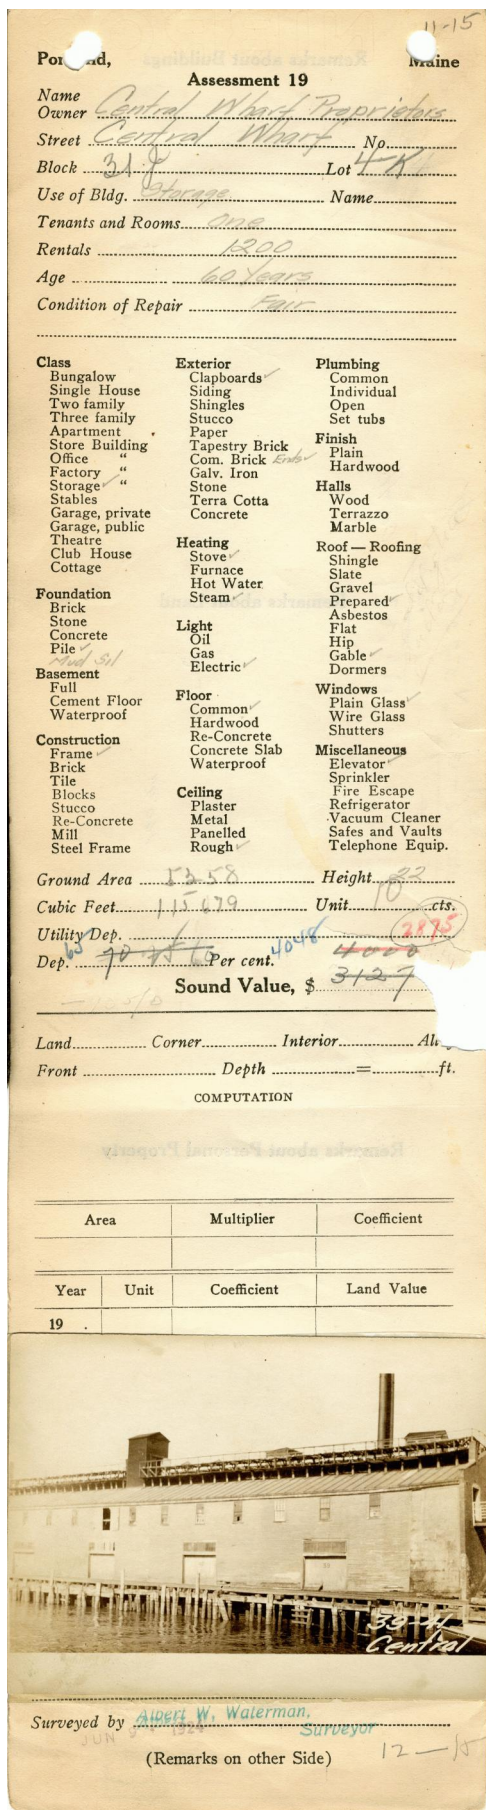 11-15
Portland, Maine
Assessment 19
Name
Owner Central Wharf Proprietors
Street Central Wharf No.
Block 31 Lot 4-K
Use of Bldg. Storage Name
Tenants and Rooms One
Rentals 1200
Age 60 Years
Condition of Repair Fair
Class
Bungalow
Single House
Two family
Three family
Apartment
Store Building
Office "
Factory "
Storage ✓ "
Stables
Garage, private
Garage, public
Theatre
Club House
Cottage
Foundation
Brick
Stone
Concrete
Pile ✓
Mud Sil
Basement
Full
Cement Floor
Waterproof
Construction
Frame ✓
Brick
Tile
Blocks
Stucco
Re-Concrete
Mill
Steel Frame
Exterior
Clapboards ✓
Siding
Shingles
Stucco
Paper
Tapestry Brick
Com. Brick Ends ✓
Galv. Iron
Stone
Terra Cotta
Concrete
Heating
Stove ✓
Furnace
Hot Water
Steam ✓
Light
Oil
Gas
Electric ✓
Floor
Common ✓
Hardwood
Re-Concrete
Concrete Slab
Waterproof
Ceiling
Plaster
Metal
Panelled
Rough ✓
Plumbing
Common
Individual
Open
Set tubs
Finish
Plain
Hardwood
Halls
Wood
Terrazzo
Marble
Roof — Roofing
Shingle
Slate
Gravel
Prepared ✓
Asbestos
Flat
Hip
Gable ✓
Dormers
Windows
Plain Glass ✓
Wire Glass
Shutters
Miscellaneous
Elevator ✓
Sprinkler
Fire Escape
Refrigerator
Vacuum Cleaner
Safes and Vaults
Telephone Equip.
Ground Area 5358 Height 22
Cubic Feet 115679 Unit 10 cts.
Utility Dep. 2875
Dep. 65 70 75 60 Per cent. 4048 4000
Sound Value, $ 3127
Land Corner Interior
Front Depth = ft.
COMPUTATION
Area Multiplier Coefficient
Year Unit Coefficient Land Value
19 .
39-41
Central
Surveyed by Albert W. Waterman,
JUN 1924 Surveyor
(Remarks on other Side)
12-15